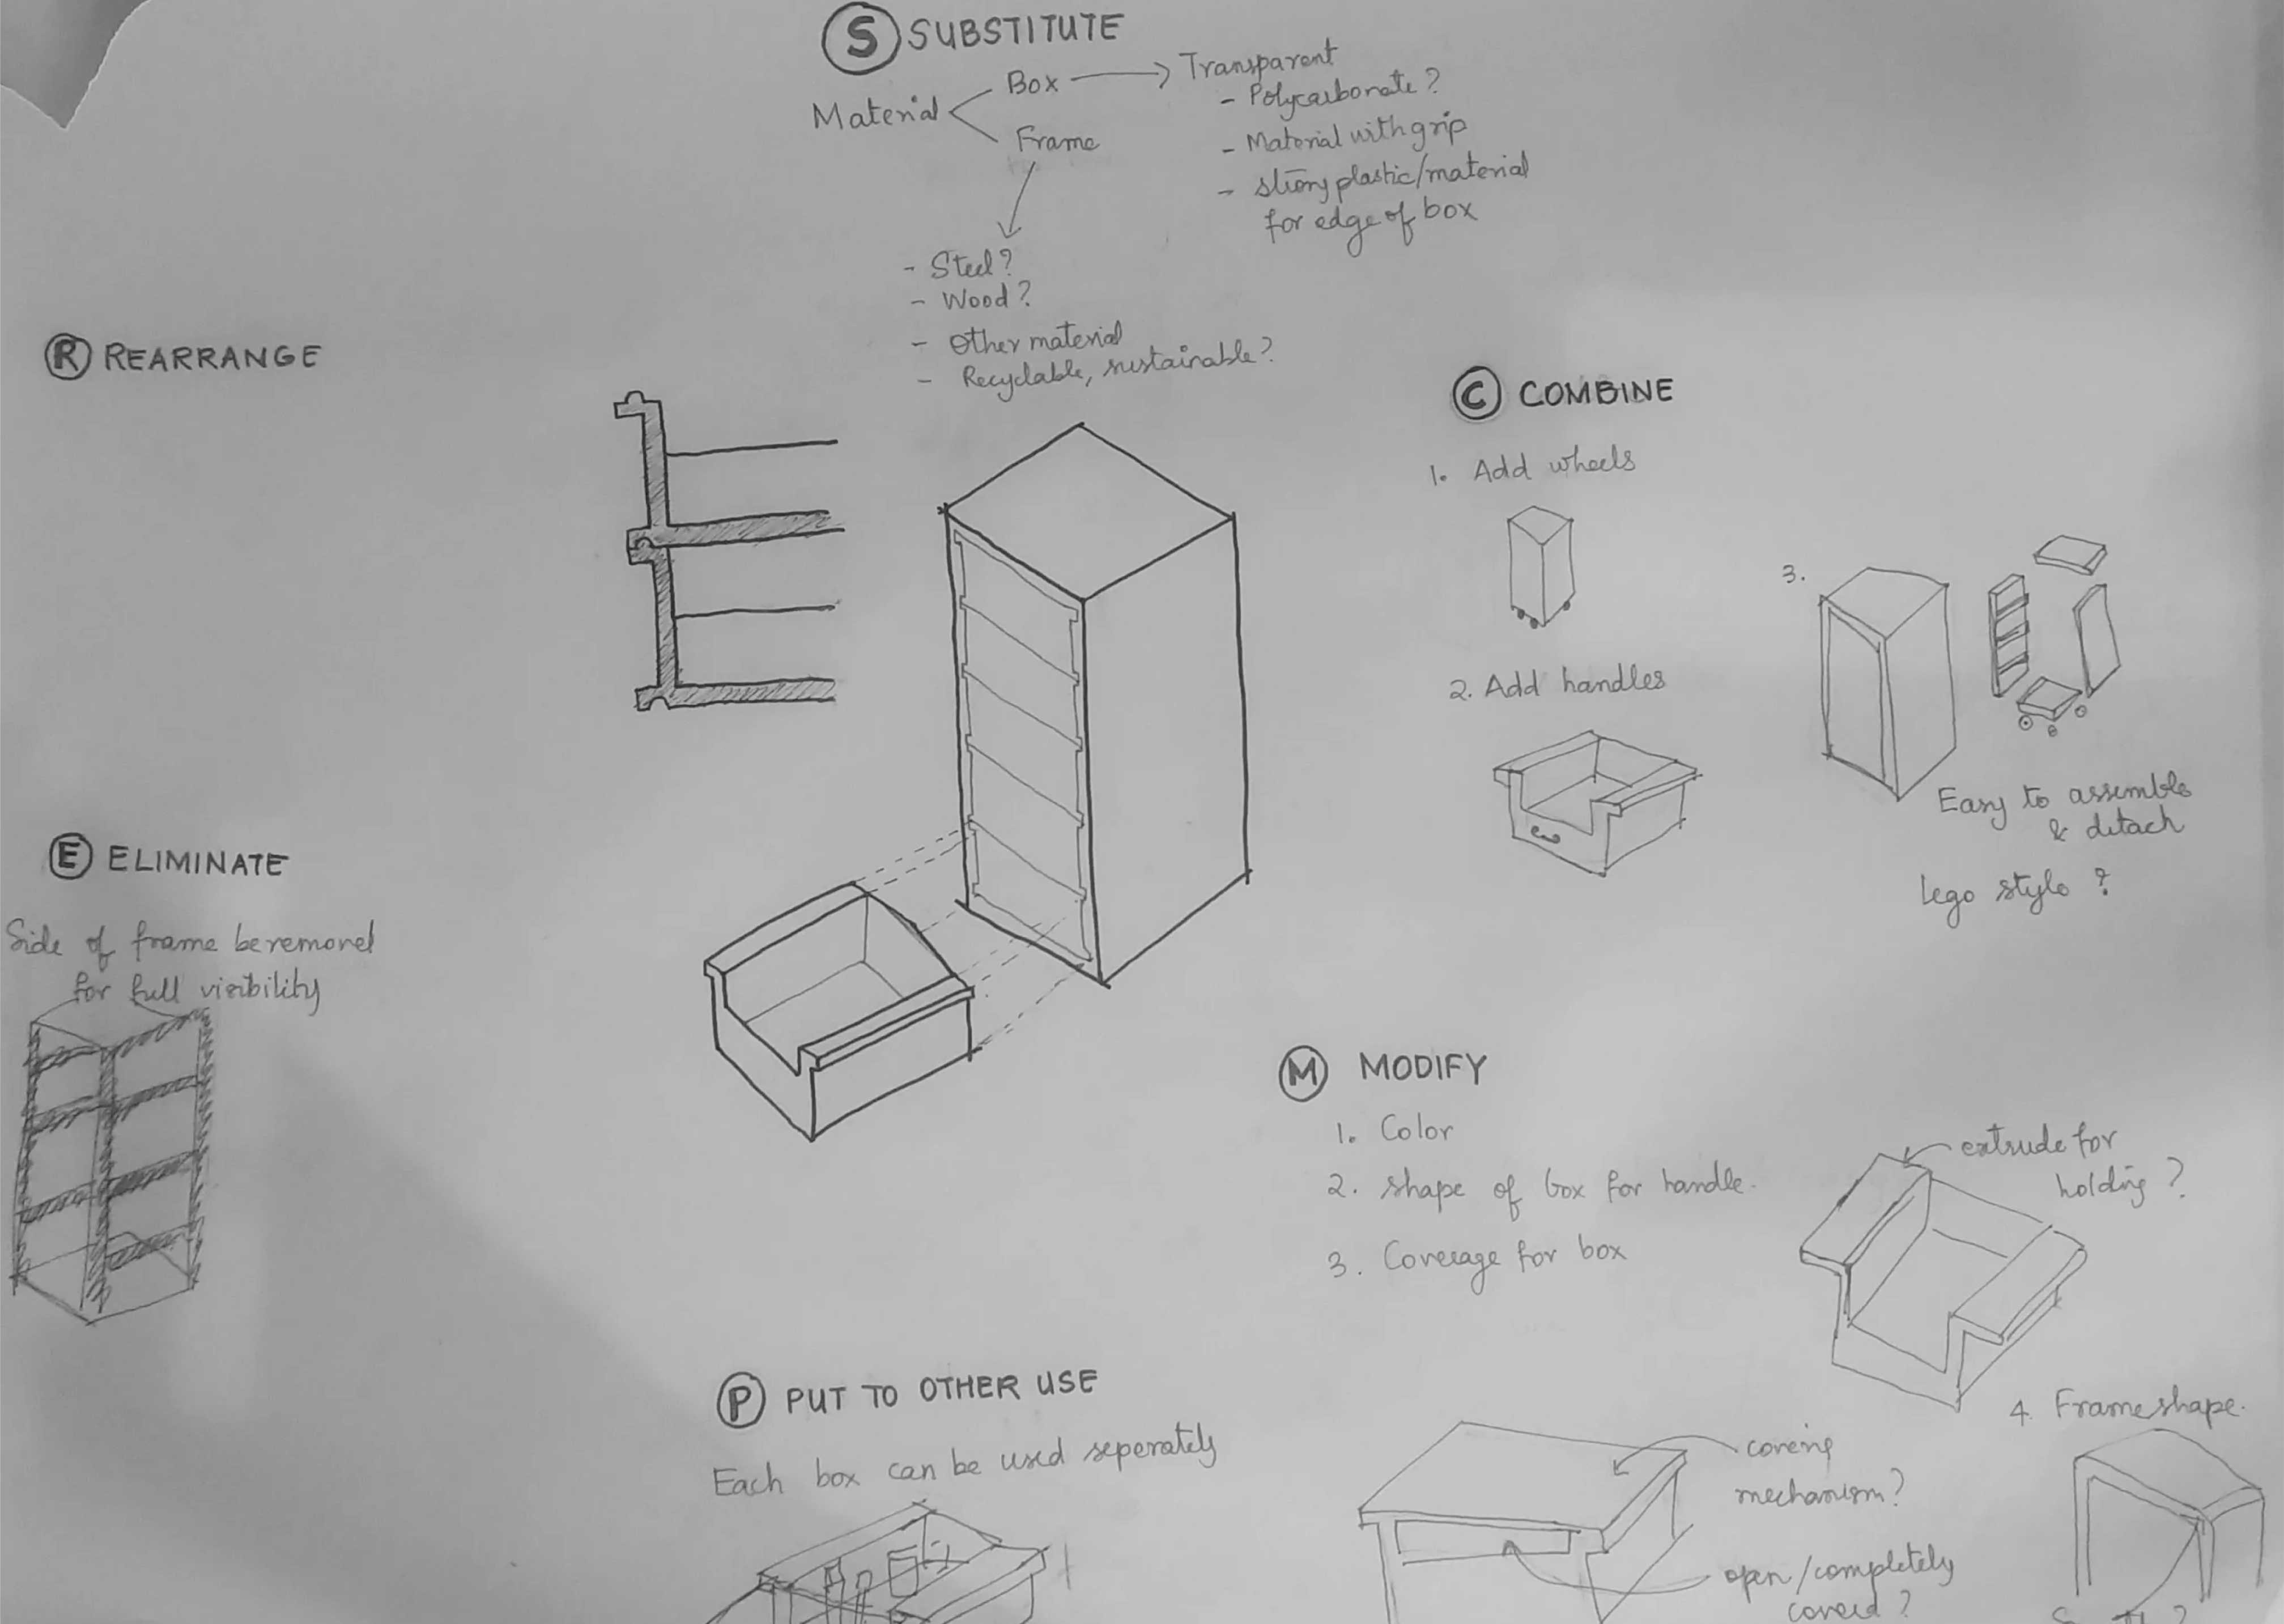 S SUBSTITUTE
Material
Box
Frame
Transparent
- Polycarbonate?
- Material with grip
- strong plastic/material
for edge of box
- Steel?
- Wood?
- Other material
- Recyclable, sustainable?
R REARRANGE
C COMBINE
1. Add wheels
2. Add handles
3.
Easy to assemble
& detach
Lego style?
E ELIMINATE
Side of frame be removed
for full visibility
M MODIFY
1. Color
2. shape of box for handle.
3. Coverage for box
extrude for
holding?
4. Frame shape.
covering
mechanism?
open/completely
covered?
P PUT TO OTHER USE
Each box can be used seperately